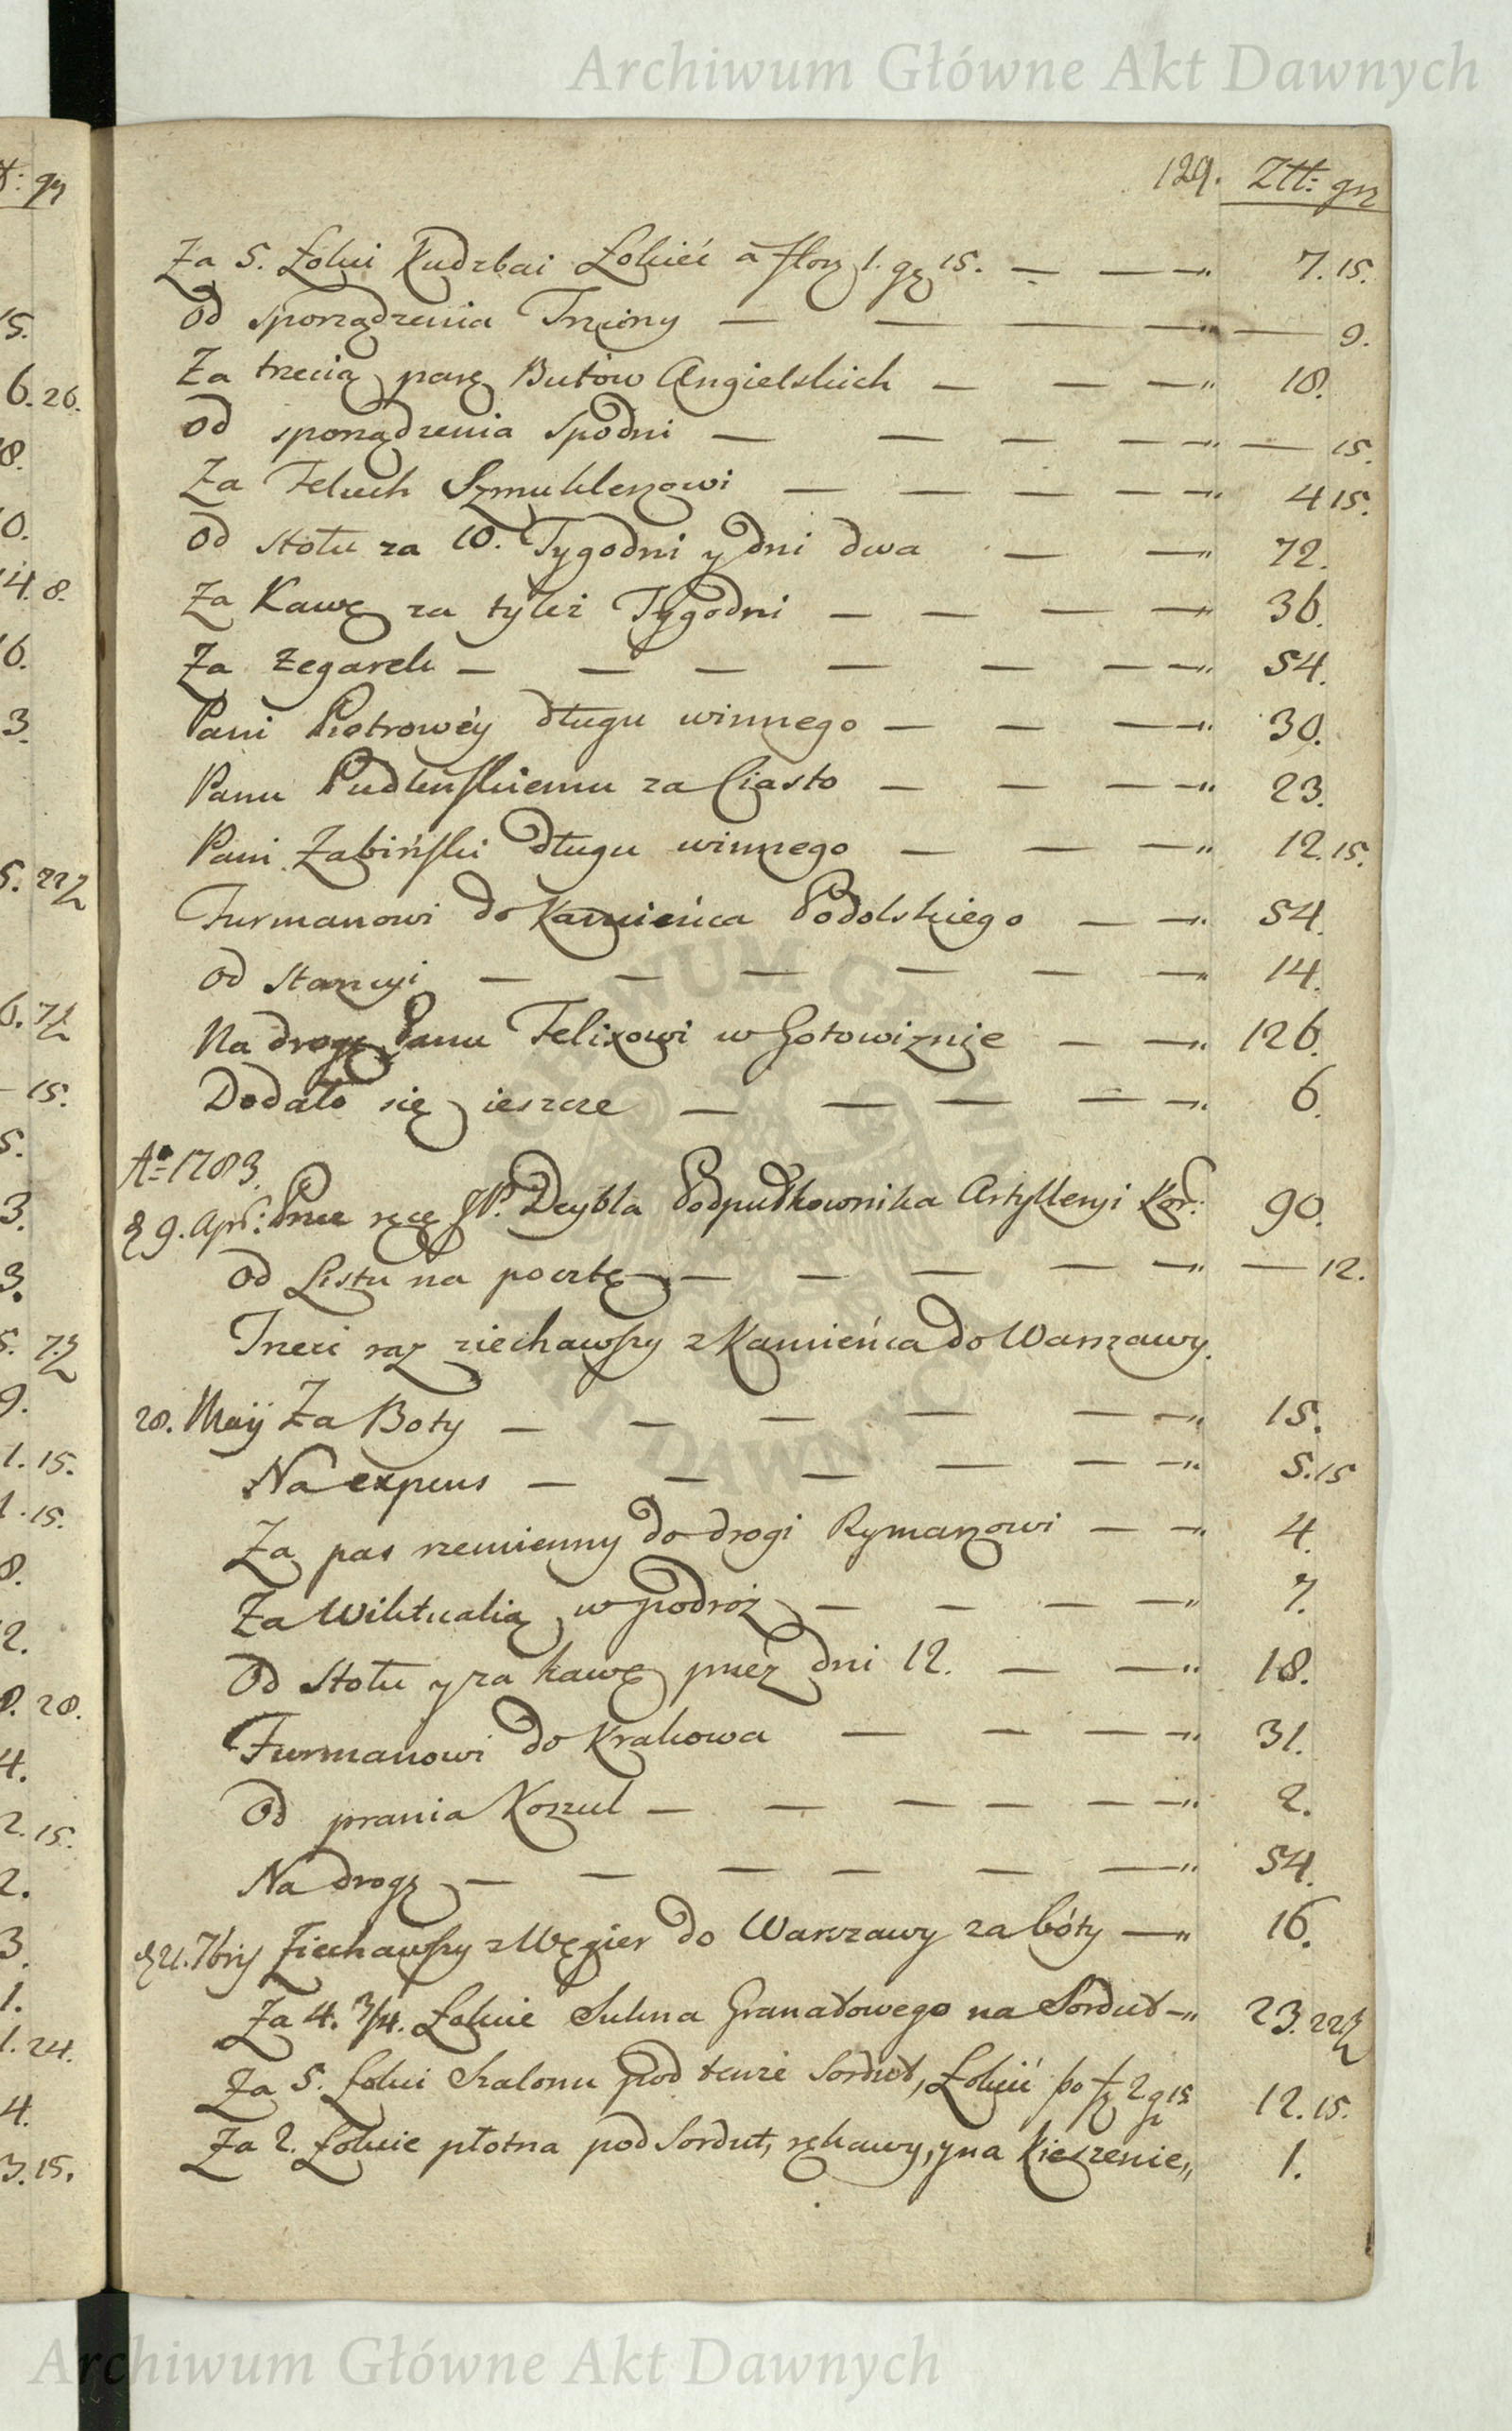 Archiwum Główne Akt Dawnych
129. Ztł: gr
Za 5. Łokci Kudrbai Łokieć à flor 1. gr 15. 7. 15.
od sporządzenia Trzciny 9.
Za trzecią parę Butów Angielskich 18.
od sporządzenia Spodni 15.
Za Feluch Szmuklerzowi 4 15.
od stołu za 10. Tygodni y dni dwa 72.
Za Kawę za tyleż Tygodni 36.
Za Zegarek 54.
Pani Piotrowéy długu winnego 30.
Panu Pudłuskiemu za Ciasto 23.
Pani Żabiński długu winnego 12. 15.
Furmanowi do Kamieńca Podolskiego 54.
od Stancyi 14.
Na drogę Panu Felixowi w Gotowiznie 126.
Dodało się ieszcze 6.
Aº 1783.
d 9. Apr: Przez ręce JP. Deybla Podpułkownika Artylleryi Kor: 90.
od Listu na pocztę 12.
Trzeci raz ziechawszy z Kamieńca do Warszawy.
28. Maij Za Boty 15.
Na expens 5. 15
Za pas rzemienny do drogi Rymarzowi 4.
Za Wiktualią w podróż 7.
Od Stołu y za kawę przez dni 12. 18.
Furmanowi do Krakowa 31.
Od prania Koszul 2.
Na drogę 54.
d 21. 7bris Ziechawszy z Węgier do Warszawy za bóty 16.
Za 4. 3/4. Łokcie Sukna Granatowego na Sordut 23. 22½
Za 5. Łokci Szalonu pod tenże Sordut, Łokieć po fz 2 gr 15 12. 15.
Za 2. Łokcie płótna pod Sordut, rękawy, y na Kieszenie 1.
6. 26.
4. 8.
5. 22½
6. 7½
15.
5. 7½
1. 15.
1. 15.
8. 28.
2. 15.
1. 24.
3. 15.
Archiwum Główne Akt Dawnych